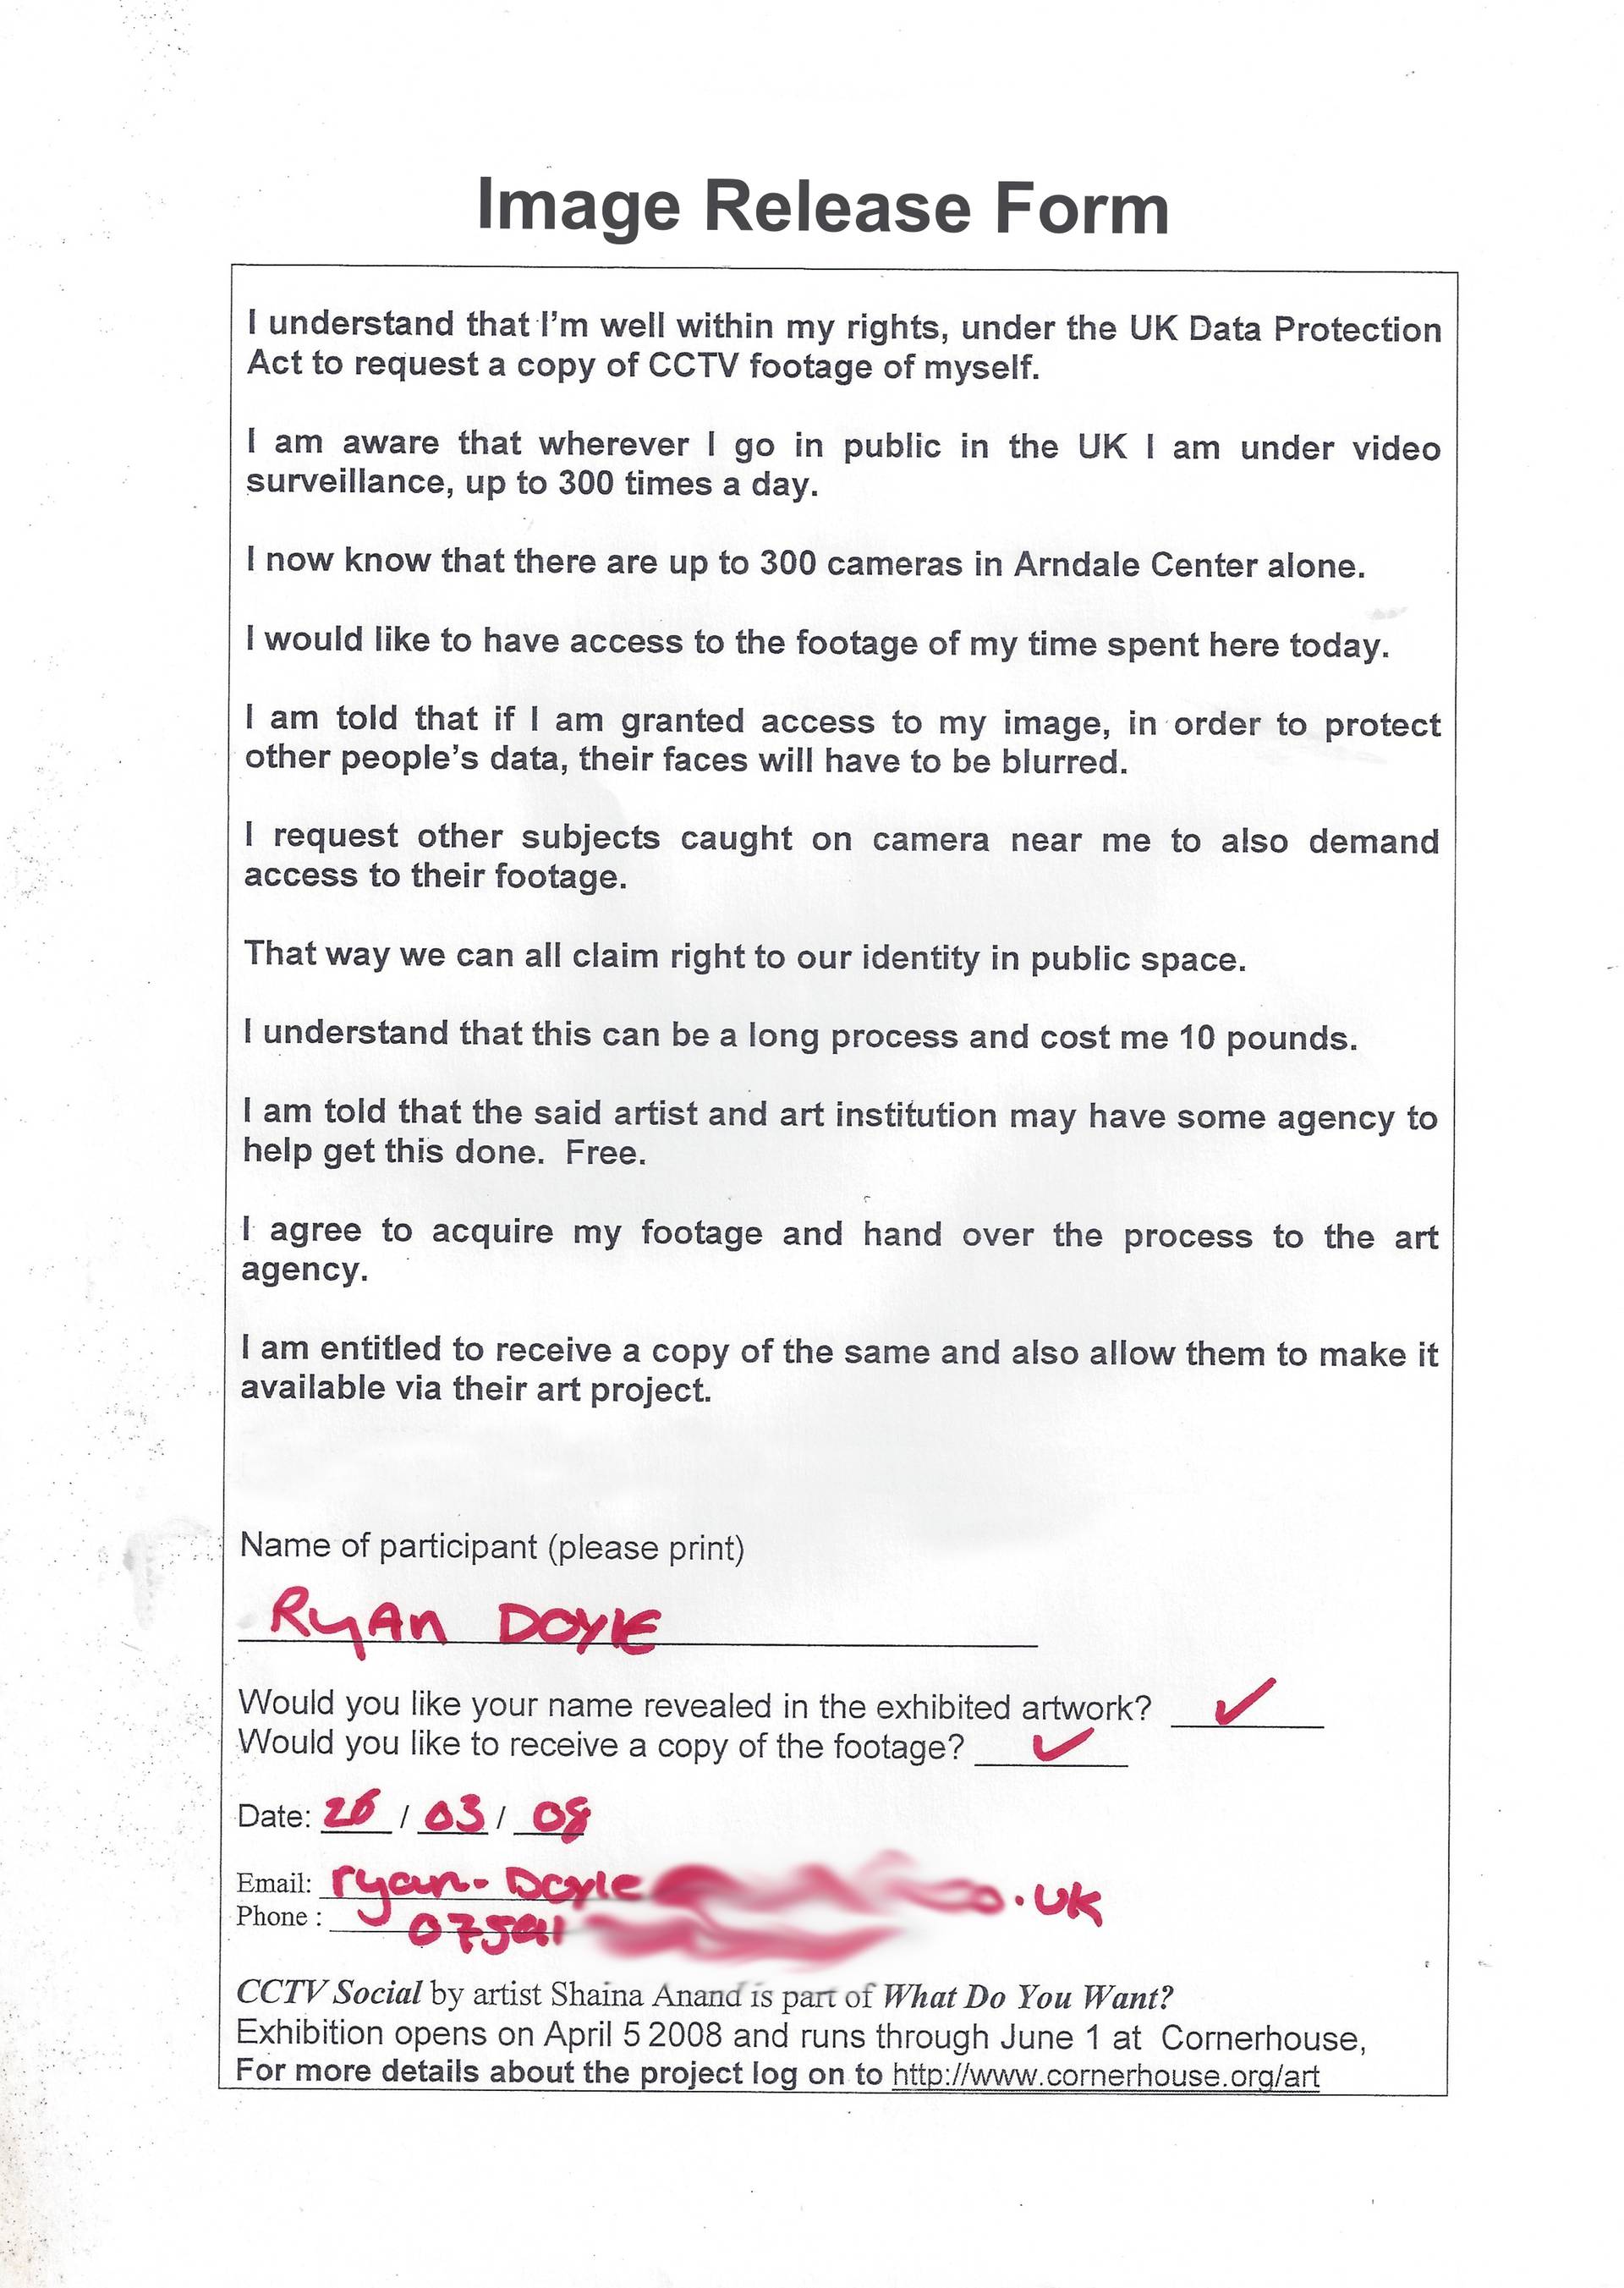 Image Release Form
I understand that I'm well within my rights, under the UK Data Protection
Act to request a copy of CCTV footage of myself.
I am aware that wherever I go in public in the UK I am under video
surveillance, up to 300 times a day.
I now know that there are up to 300 cameras in Arndale Center alone.
I would like to have access to the footage of my time spent here today.
I am told that if I am granted access to my image, in order to protect
other people's data, their faces will have to be blurred.
I request other subjects caught on camera near me to also demand
access to their footage.
That way we can all claim right to our identity in public space.
I understand that this can be a long process and cost me 10 pounds.
I am told that the said artist and art institution may have some agency to
help get this done. Free.
I agree to acquire my footage and hand over the process to the art
agency.
I am entitled to receive a copy of the same and also allow them to make it
available via their art project.
Name of participant (please print)
RyAn DOYlE
Would you like your name revealed in the exhibited artwork? ✓
Would you like to receive a copy of the footage? ✓
Date: 26 / 03 / 08
Email: ryan-Doyle .UK
Phone :
CCTV Social by artist Shaina Anand is part of What Do You Want?
Exhibition opens on April 5 2008 and runs through June 1 at Cornerhouse,
For more details about the project log on to http://www.cornerhouse.org/art